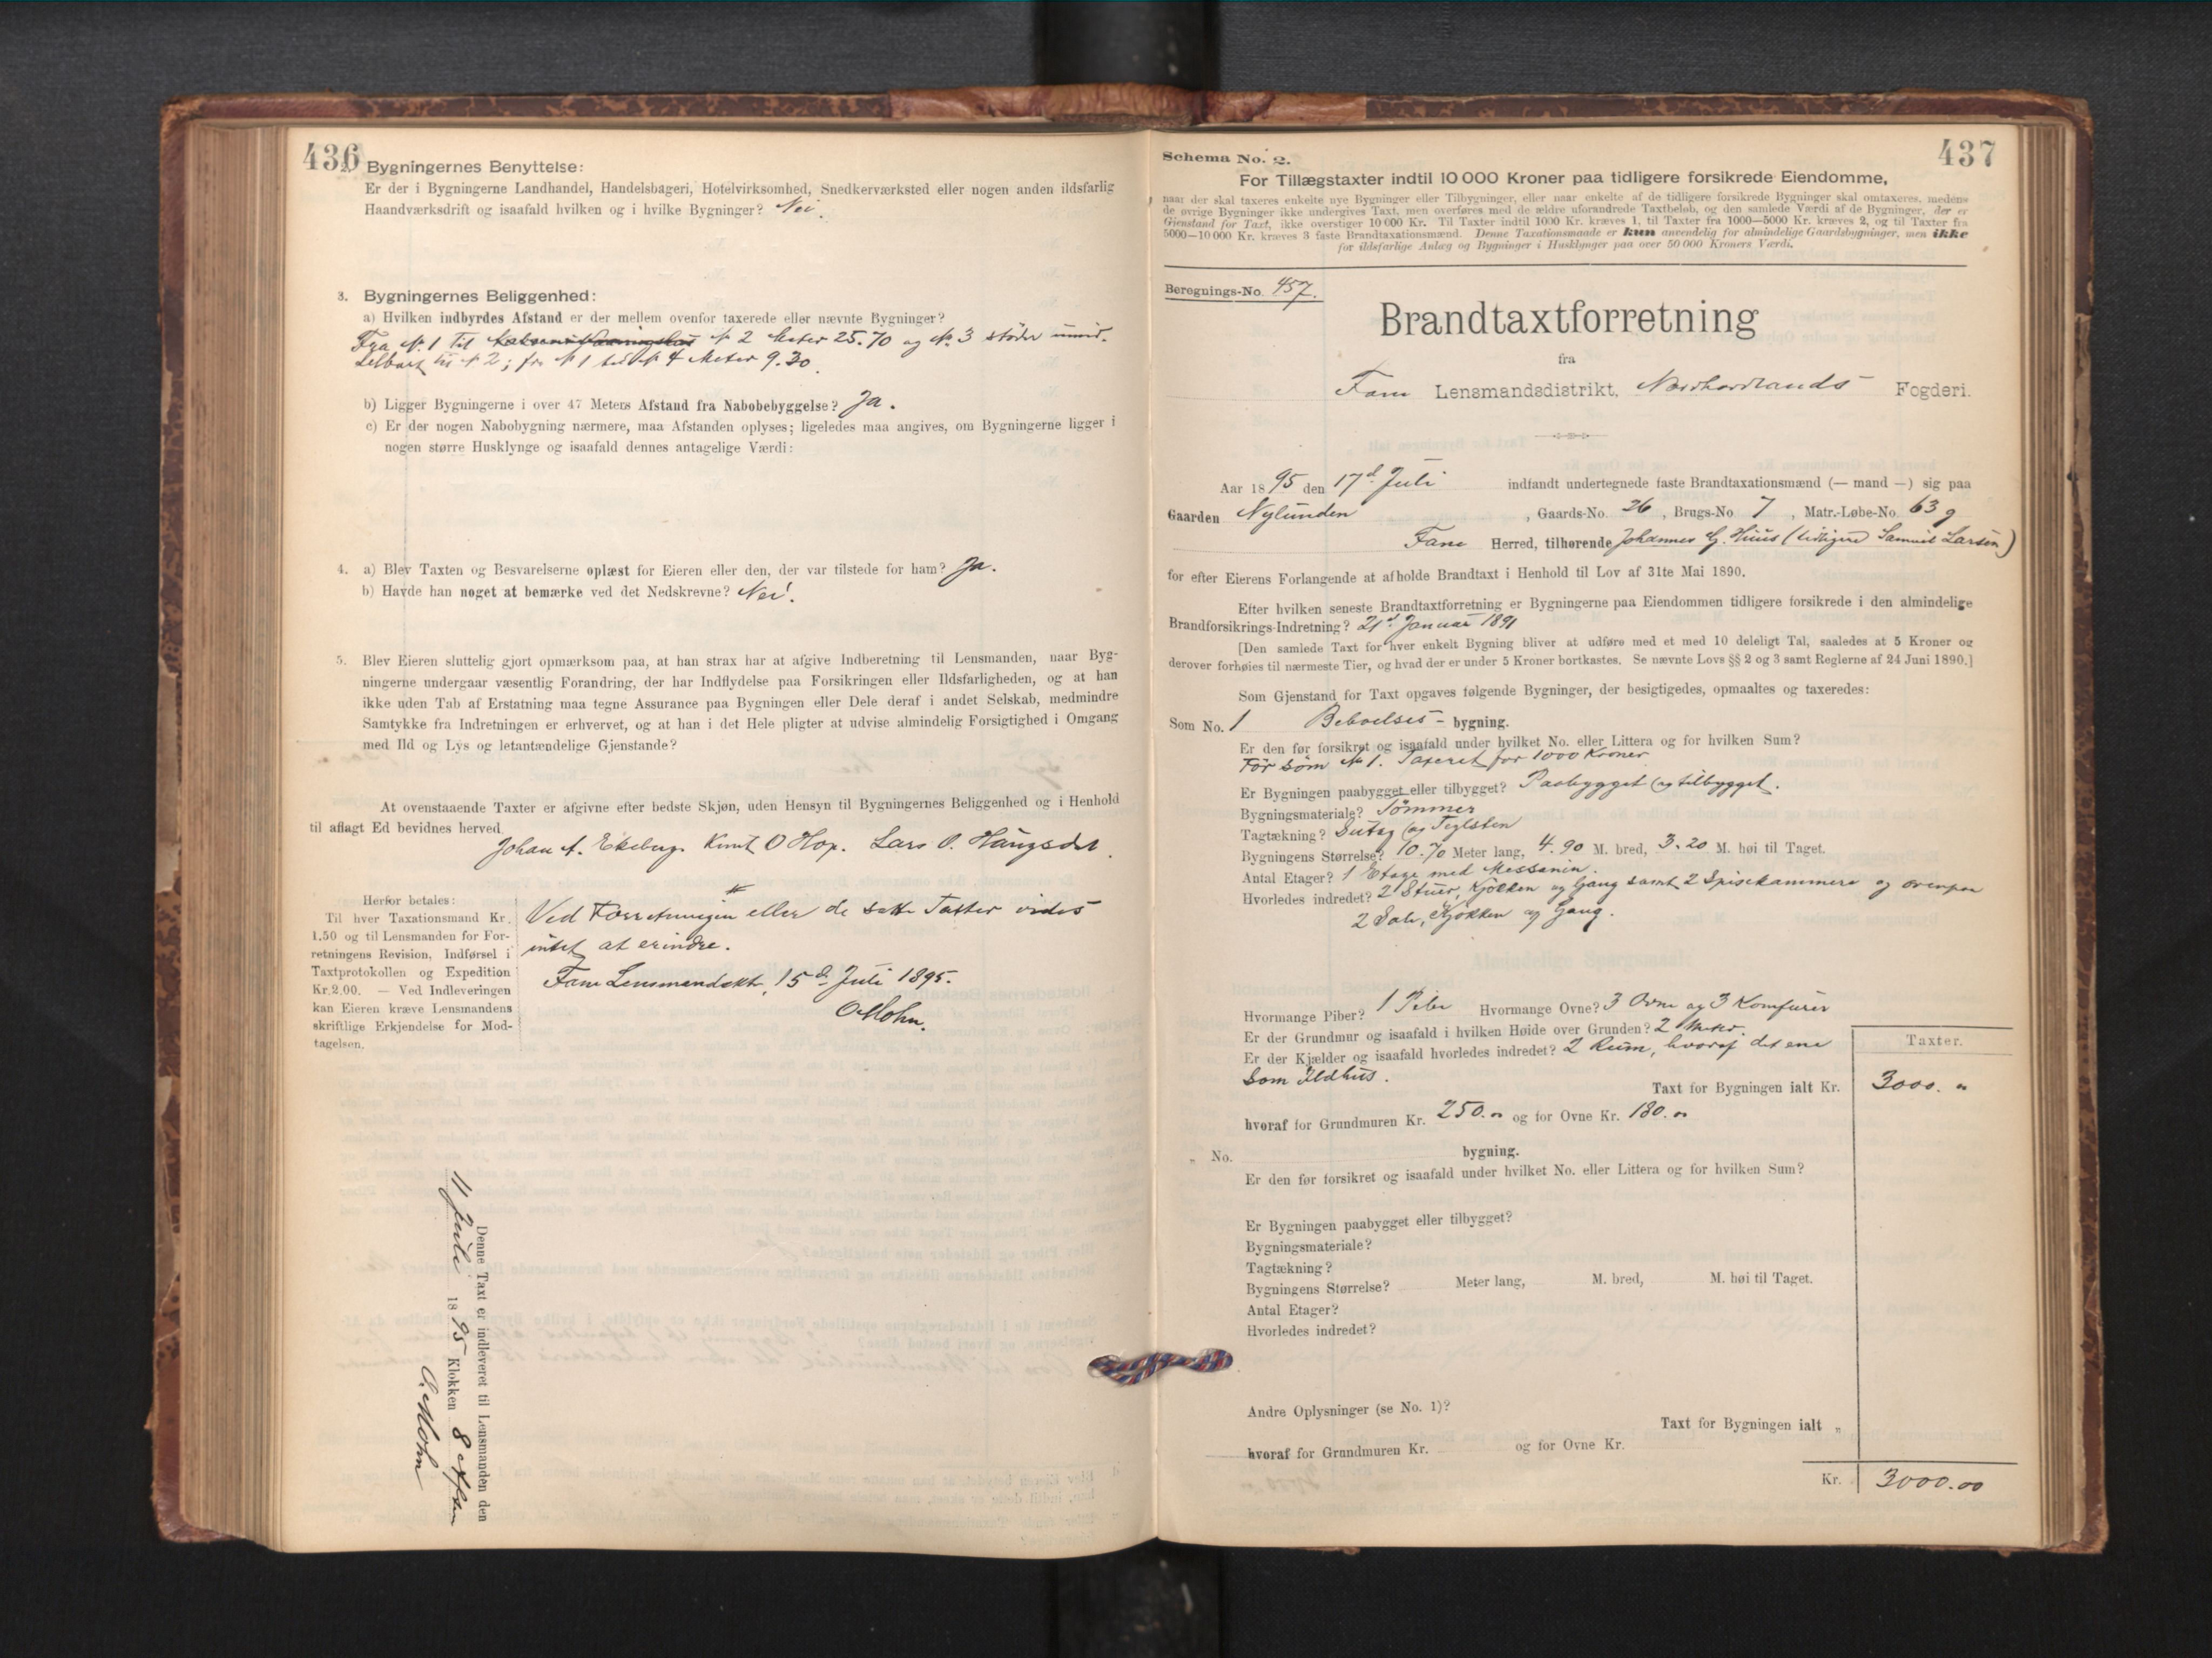 436
2. Bygningernes Benyttelse:
Er der i Bygningerne Landhandel, Handelsbageri, Hotelvirksomhed, Snedkerværksted eller nogen anden ildsfarlig
Haandværksdrift og isaafald hvilken og i hvilke Bygninger? Nei.
3. Bygningernes Beliggenhed:
a) Hvilken indbyrdes Afstand er der mellem ovenfor taxerede eller nævnte Bygninger?
Fra N. 1 til N 2 Meter 25.70 og N. 3 støder umid-
delbart til N 2; fra N 1 til N 4 Meter 9.30.
b) Ligger Bygningerne i over 47 Meters Afstand fra Nabobebyggelse? Ja.
c) Er der nogen Nabobygning nærmere, maa Afstanden oplyses; ligeledes maa angives, om Bygningerne ligger i
nogen større Husklynge og isaafald dennes antagelige Værdi:
4. a) Blev Taxten og Besvarelserne oplæst for Eieren eller den, der var tilstede for ham? Ja.
b) Havde han noget at bemærke ved det Nedskrevne? Nei.
5. Blev Eieren sluttelig gjort opmærksom paa, at han strax har at afgive Indberetning til Lensmanden, naar Byg-
ningerne undergaar væsentlig Forandring, der har Indflydelse paa Forsikringen eller Ildsfarligheden, og at han
ikke uden Tab af Erstatning maa tegne Assurance paa Bygningen eller Dele deraf i andet Selskab, medmindre
Samtykke fra Indretningen er erhvervet, og at han i det Hele pligter at udvise almindelig Forsigtighed i Omgang
med Ild og Lys og letantændelige Gjenstande?
At ovenstaaende Taxter er afgivne efter bedste Skjøn, uden Hensyn til Bygningernes Beliggenhed og i Henhold
til aflagt Ed bevidnes herved.
Johan A. Ekeberg. Knut O Hop. Lars O. Haugsdal.
Herfor betales:
Til hver Taxationsmand Kr.
1.50 og til Lensmanden for For-
retningens Revision, Indførsel i
Taxtprotokollen og Expedition
Kr. 2.00. — Ved Indleveringen
kan Eieren kræve Lensmandens
skriftlige Erkjendelse for Mod-
tagelsen.
Ved Forretningen eller de satte Taxter vides
intet at erindre.
Fane Lensmandskt, 15d Juli 1895.
O Mohn.
Denne Taxt er indleveret til Lensmanden den
11 Juli 1895 Klokken 8 Aften
O. Mohn
437
Schema No. 2.
For Tillægstaxter indtil 10 000 Kroner paa tidligere forsikrede Eiendomme,
naar der skal taxeres enkelte nye Bygninger eller Tilbygninger, eller naar enkelte af de tidligere forsikrede Bygninger skal omtaxeres, medens
de øvrige Bygninger ikke undergives Taxt, men overføres med de ældre uforandrede Taxtbeløb, og den samlede Værdi af de Bygninger, der er
Gjenstand for Taxt, ikke overstiger 10 000 Kr. Til Taxter indtil 1000 Kr. kræves 1, til Taxter fra 1000—5000 Kr. kræves 2, og til Taxter fra
5000—10 000 Kr. kræves 3 faste Brandtaxationsmænd. Denne Taxationsmaade er kun anvendelig for almindelige Gaardsbygninger, men ikke
for ildsfarlige Anlæg og Bygninger i Husklynger paa over 50 000 Kroners Værdi.
Beregnings-No. 457.
Brandtaxtforretning
fra
Fane Lensmandsdistrikt, Nordhordlands Fogderi.
Aar 1895 den 17d Juli indfandt undertegnede faste Brandtaxationsmænd (— mand —) sig paa
Gaarden Nylunden, Gaards-No. 26, Brugs-No 7, Matr.-Løbe-No. 63 g
Fane Herred, tilhørende Johannes G. Huus (tidligere Samuel Larsen)
for efter Eierens Forlangende at afholde Brandtaxt i Henhold til Lov af 31te Mai 1890.
Efter hvilken seneste Brandtaxtforretning er Bygningerne paa Eiendommen tidligere forsikrede i den almindelige
Brandforsikrings-Indretning? 21d Januar 1891
[Den samlede Taxt for hver enkelt Bygning bliver at udføre med et med 10 deleligt Tal, saaledes at 5 Kroner og
derover forhøies til nærmeste Tier, og hvad der er under 5 Kroner bortkastes. Se nævnte Lovs §§ 2 og 3 samt Reglerne af 24 Juni 1890.]
Som Gjenstand for Taxt opgaves følgende Bygninger, der besigtigedes, opmaaltes og taxeredes:
Som No. 1 Beboelses-bygning.
Er den før forsikret og isaafald under hvilket No. eller Littera og for hvilken Sum?
Før som N 1. Taxeret for 1000 Kroner
Er Bygningen paabygget eller tilbygget? Paabygget og tilbygget.
Bygningsmateriale? Tømmer
Tagtækning? Sutag og Teglsten
Bygningens Størrelse? 10.70 Meter lang, 4.90 M. bred, 3.20 M. høi til Taget.
Antal Etager? 1 Etage med Messanin.
Hvorledes indredet? 2 Stuer, Kjøkken og Gang samt 2 Spisekammere og ovenpaa
2 Sale, Kjøkken og Gang.
Hvormange Piber? 1 Pibe Hvormange Ovne? 3 Ovne og 3 Komfurer
Er der Grundmur og isaafald i hvilken Høide over Grunden? 2 Meter.
Er der Kjælder og isaafald hvorledes indredet? 2 Rum, hvoraf det ene
som Ildhus.
Taxter.
Taxt for Bygningen ialt Kr. 3000. "
hvoraf for Grundmuren Kr. 250.00 og for Ovne Kr. 180.00
" No. bygning.
Er den før forsikret og isaafald under hvilket No. eller Littera og for hvilken Sum?
Er Bygningen paabygget eller tilbygget?
Bygningsmateriale?
Tagtækning?
Bygningens Størrelse? Meter lang, M. bred, M. høi til Taget.
Antal Etager?
Hvorledes indredet?
Andre Oplysninger (se No. 1)?
Taxt for Bygningen ialt "
hvoraf for Grundmuren Kr. og for Ovne Kr.
Kr. 3000.00